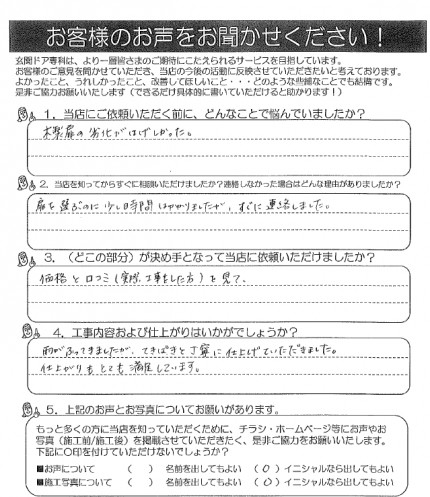 お客様のお声をお聞かせください！
玄関ドア専科は、より一層皆さまのご期待にこたえられるサービスを目指しています。
お客様のご意見を聞かせていただき、当店の今後の活動に反映させていただきたいと考えております。
よかったこと、うれしかったこと、改善してほしいこと・・・どのような些細なことでも結構です。
是非ご協力お願いいたします（できるだけ具体的に書いていただけると助かります！）
1．当店にご依頼いただく前に、どんなことで悩んでいましたか？
木製扉の劣化がはげしかった。
2．当店を知ってからすぐに相談いただけましたか？連絡しなかった場合はどんな理由がありましたか？
扉を選ぶのに少し時間はかかりましたが、すぐに連絡しました。
3．（どこの部分）が決め手となって当店に依頼いただけましたか？
価格と口コミ（実際、工事をした方）を見て、
4．工事内容および仕上がりはいかがでしょうか？
雨がふってきましたが、てきぱきと丁寧に仕上げていただきました。
仕上がりもとても満足しています。
5．上記のお声とお写真についてお願いがあります。
もっと多くの方に当店を知っていただくために、チラシ・ホームページ等にお声やお
写真（施工前/施工後）を掲載させていただきたく、是非ご協力をお願いいたします。
下記に〇印を付けていただけないでしょうか？
■お声について （　） 名前を出してもよい （○）イニシャルなら出してもよい
■施工写真について （　） 名前を出してもよい （○）イニシャルなら出してもよい